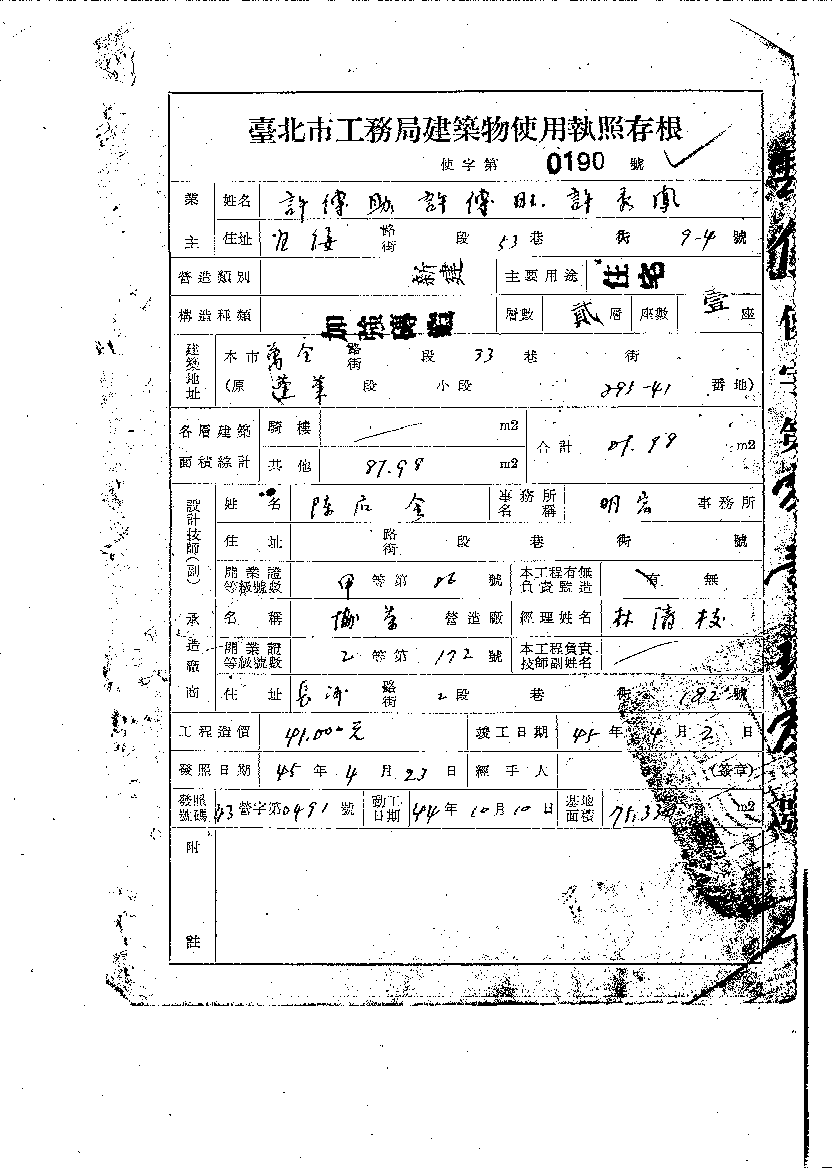 臺北市工務局建築物使用執照存根
使字第 0190 號
業主 姓名 許傳 許傳旺 許長鳳
住址 路街 段 53巷 衖 9-4號
營造類別 新建 主要用途 住宅
構造種類 加強磚造 層數 貳層 座數 壹座
建築地址 本市萬全路街 段 33巷 衖
(原 蓬萊 段 小段 293-41 番地)
各層建築面積總計 騎樓 m2 合計 87.98 m2
其他 87.98 m2
設計技師(副) 姓名 陳 金 事務所名稱 明 事務所
住址 路街 段 巷 衖 號
開業證等級號數 甲等第 82 號 本工程有無負責監造 有 無
承造廠商 名稱 營造廠 經理姓名 林清枝
開業證等級號數 乙等第 172 號 本工程負責技師副姓名
住址 長沙路街 2段 巷 衖 182號
工程造價 41,000元 竣工日期 45年4月2日
發照日期 45年4月23日 經手人 (簽章)
發照號碼 43營字第0491號 動工日期 44年10月10日 基地面積 75.33 m2
附註